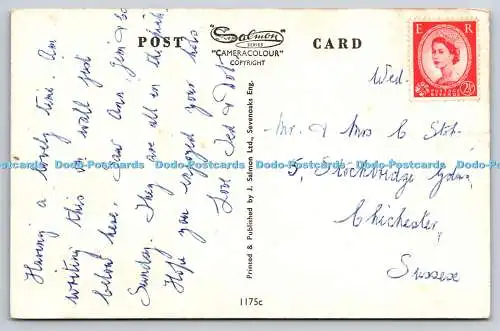 POST CARD
Salmon
SERIES
"CAMERACOLOUR"
COPYRIGHT
E R
POSTAGE REVENUE
2½D
Having a lovely time. Am
writing this on wall just
below here. Saw Ann, Jim &
Sunday. They are all in the
Hope you enjoyed your hols
Love Ted & Dot
Printed & Published by J. Salmon Ltd., Sevenoaks Eng.
1175c
Wed.
Mr. & Mrs C Stot
5, Stockbridge Gdns
Chichester,
Sussex
Dodo-Postcards Dodo-Postcards Dodo-Postcards Dodo-Postcards Dodo-Postcards Dodo-Postcards